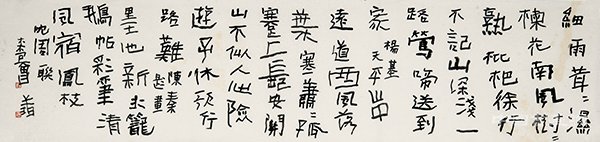 細雨茸〻濕
楝花南風樹〻
熟枇杷徐行
不記山深淺一
路鶯啼送到
家 楊基
天平山中
遠道西風落
葉寒蕭〻孤
蹇上長安關
山不似人心險
遊子休歌行
路難 陳秦
題畫
墨池新水籠
鵝帖彩筆清
風宿鳳枝
沈周聯